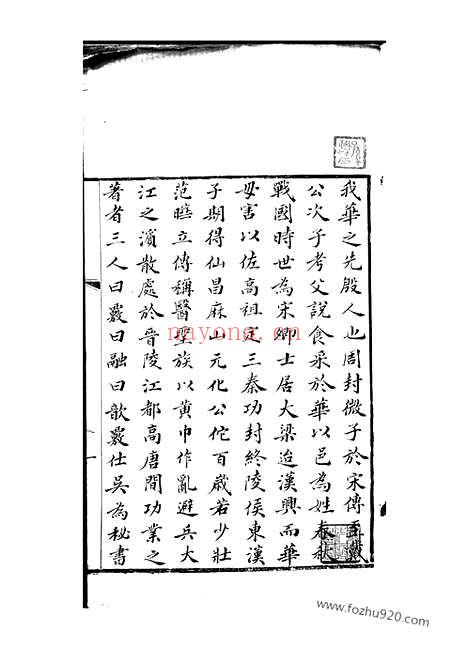 我華之先殷人也周封微子於宋傳至戴
公次子考父說食采於華以邑為姓春秋
戰國時世為宋卿士居大梁迨漢興而華
毋害以佐高祖定三秦功封終陵侯東漢
子期得仙昌麻山元化公佗百歲若少壯
范曄立傳稱醫聖族以黃巾作亂避兵大
江之濱散處於晉陵江都高唐間功業之
著者三人曰覈曰融曰歆覈仕吳為秘書
nayong.cn
www.fozhu920.com